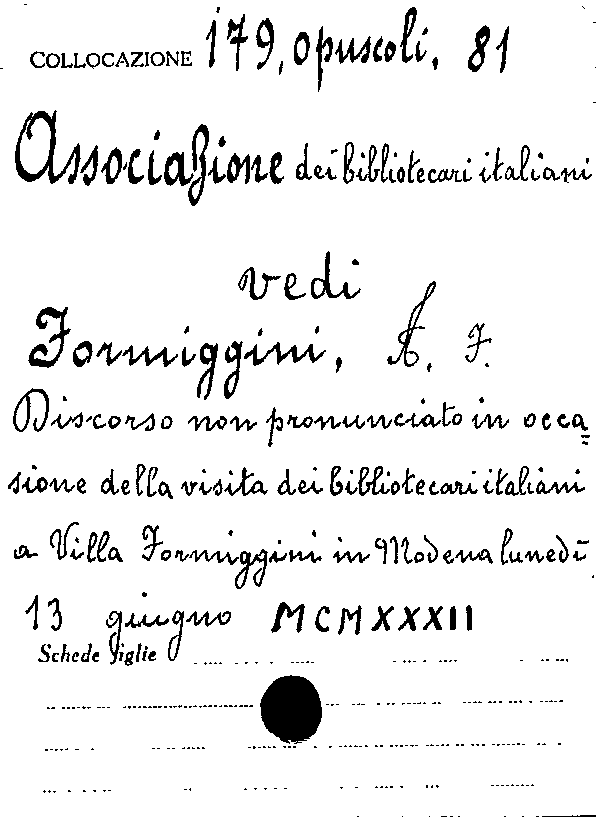 COLLOCAZIONE 179, Opuscoli, 81
Associazione dei bibliotecari italiani
vedi
Formiggini, A. F.
Discorso non pronunciato in occa=
sione della visita dei bibliotecari italiani
a Villa Formiggini in Modena lunedì
13 giugno MCMXXXII
Schede figlie